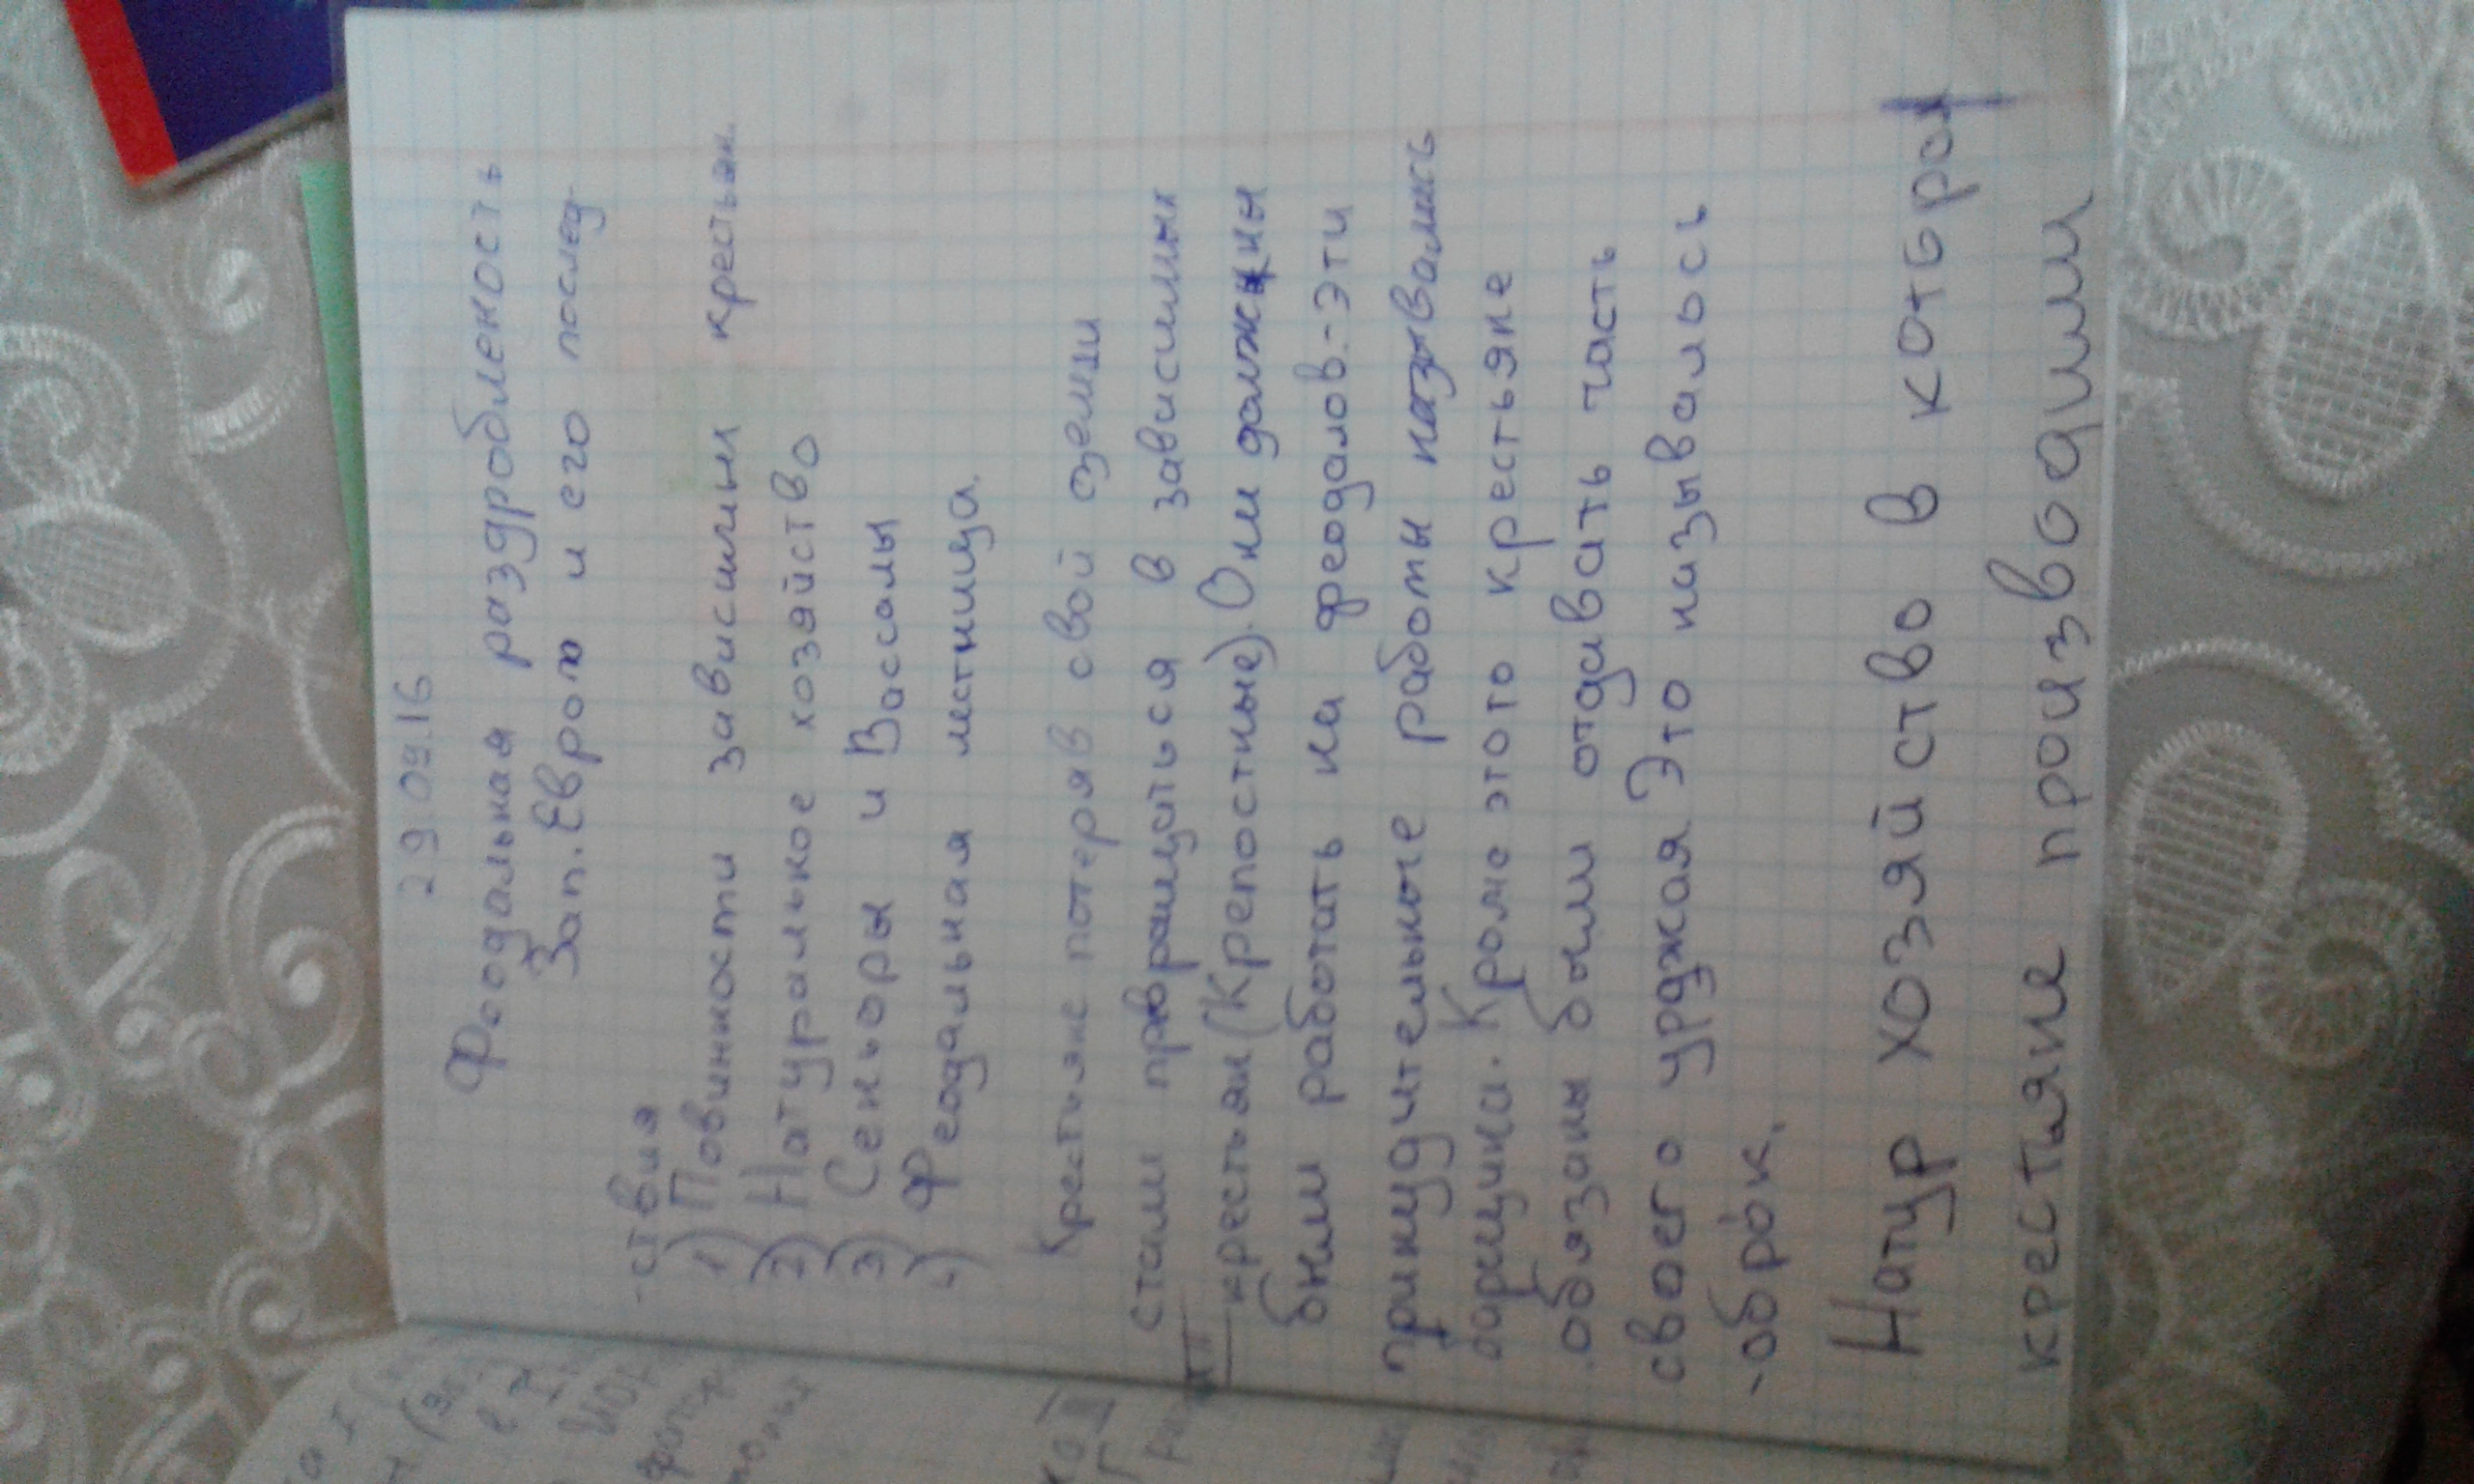 29.09.16
Феодальная раздробленость
Зап. Европ и его послед-
-ствия
1) Повинности зависимых крестьян.
2) Натуральное хозяйство
3) Сеньоры и Вассалы
4) Феодальная лестница.
Крестьяне потеряв свой земли
стали превращаться в зависимых
крестьян (Крепостные). Они должны
были работать на феодалов.-Эти
принудительные работы назвались
барщина. Кроме этого крестьяне
обязаны были отдавать часть
своего урджая Это называлось
-обро́к.
Натур хозяйство в котброй
крестьяне производили